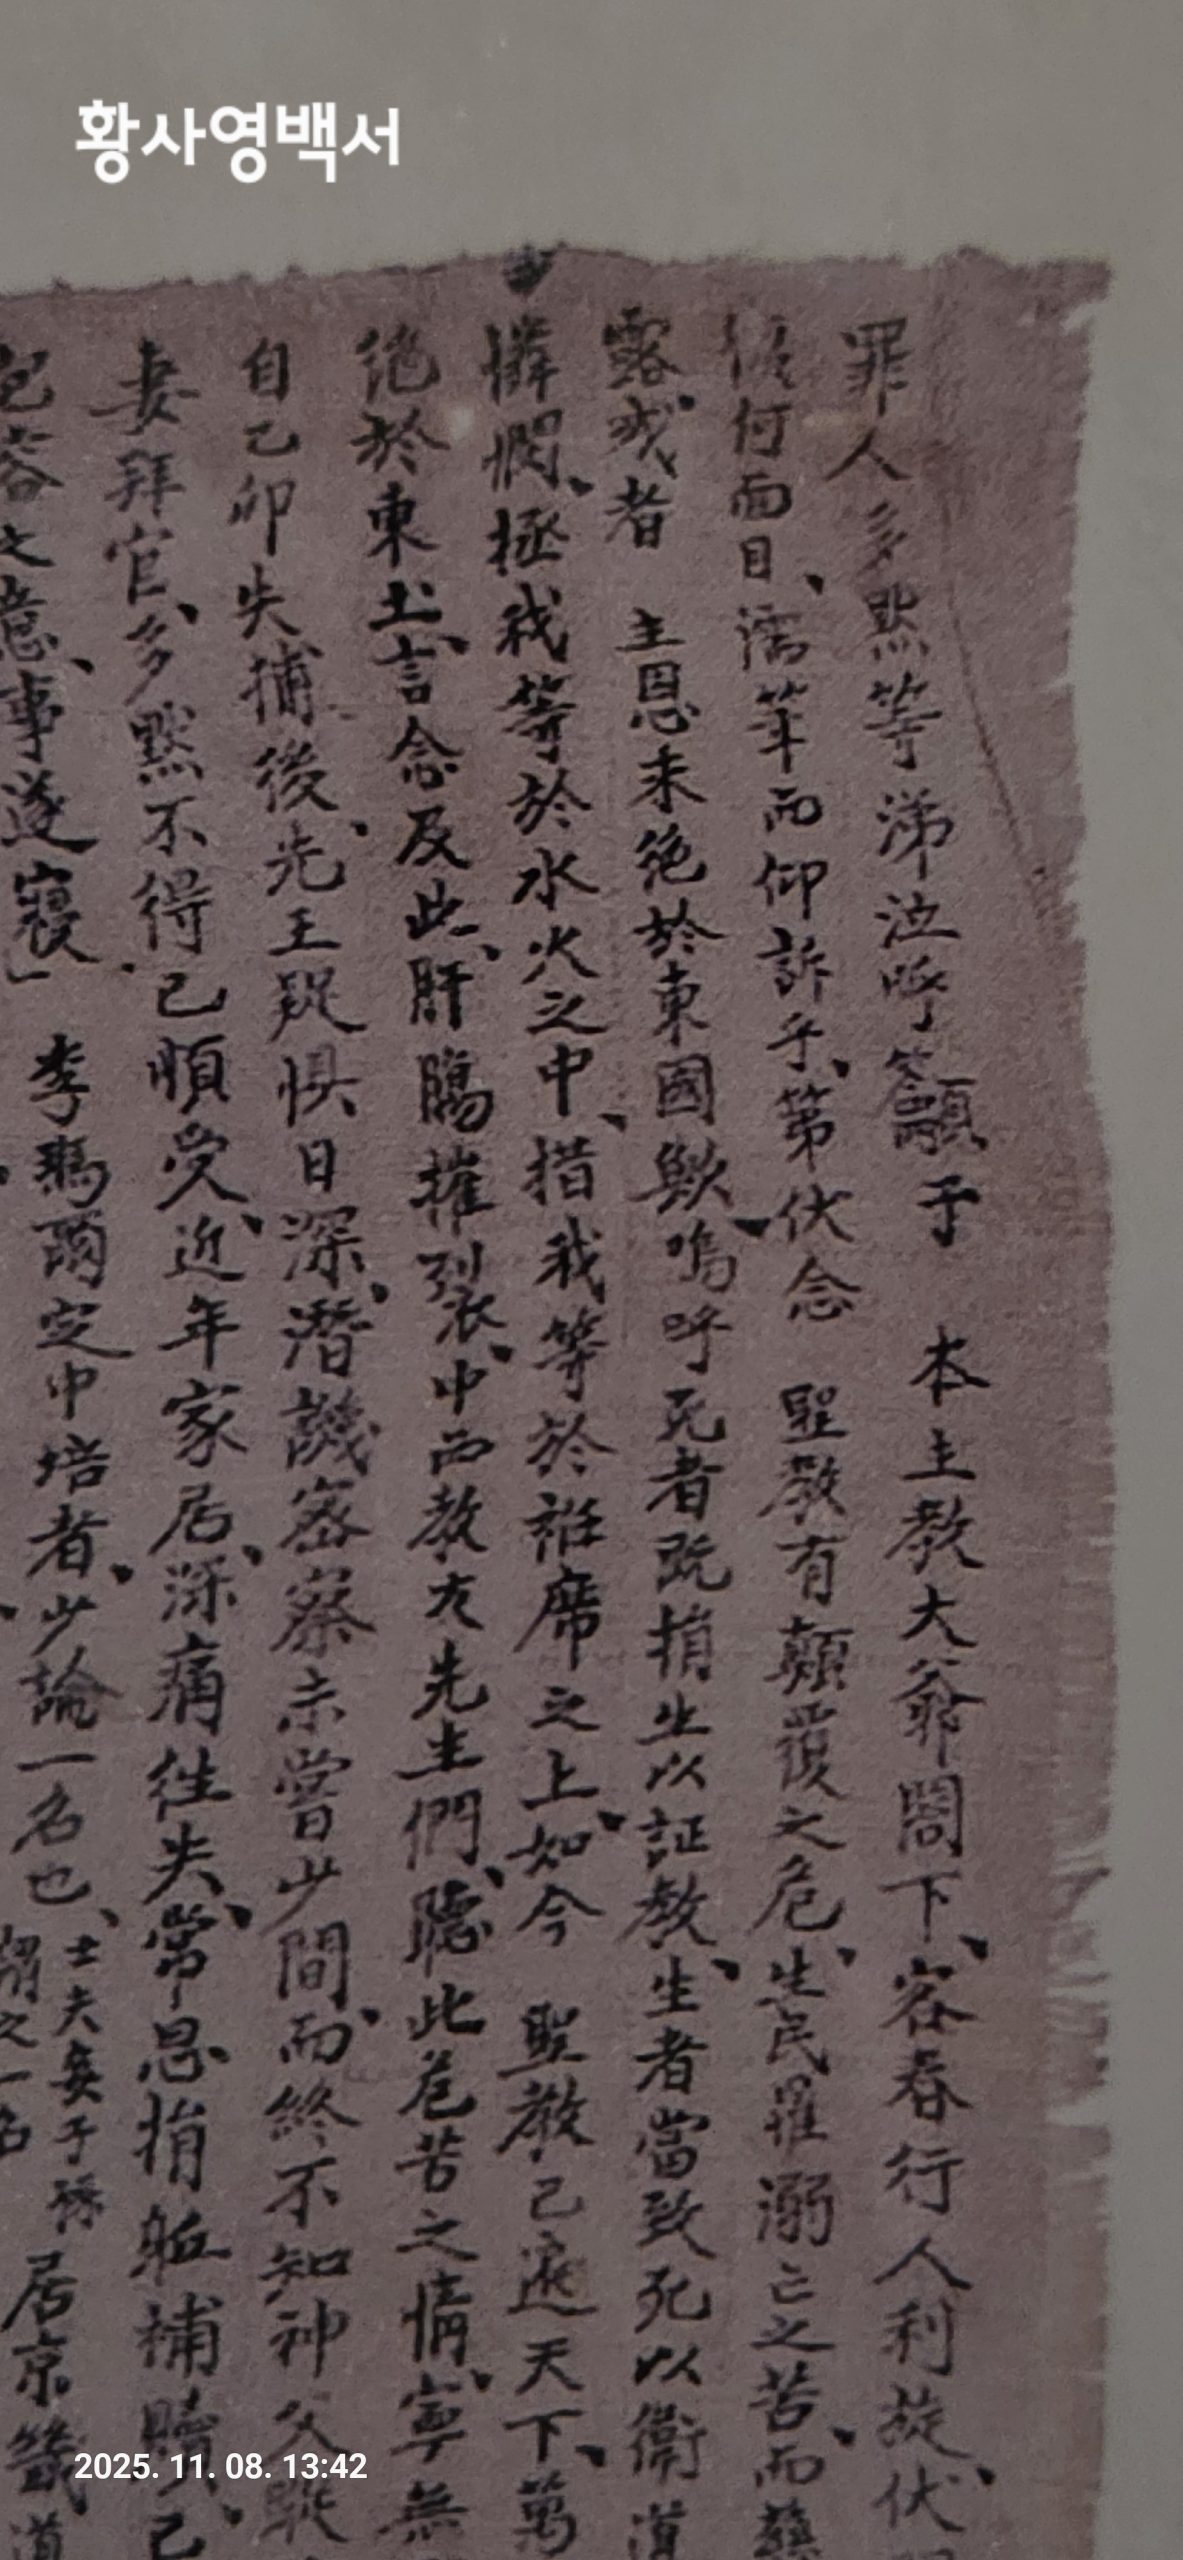 황사영백서
罪人多默等涕泣呼籲于 本主教大爺閤下、客春行人利旋、伏
何面目、濡筆而仰訴乎、第伏念 聖敎有顚覆之危、生民罹溺亡之苦、而
露我者 主恩未絶於東國歟、嗚呼死者旣捐生以証敎、生者當致死以衛道
憐憫、拯我等於水火之中、措我等於袵席之上、如今 聖敎已遍天下、萬
絶於東土、言念及此、肝膓摧裂、中西敎友先生們、聽此危苦之情、寧無
自乙卯失捕後、先王疑惧日深、潛譏密察、未嘗少間、而終不知神父
妻拜官、多默不得已順受、近年家居、深痛徃失、常思捐軀補贖、己
文意、事遂寢」 李 定中培者、少論一名也、士夫妾子 之一名 居京
2025. 11. 08. 13:42